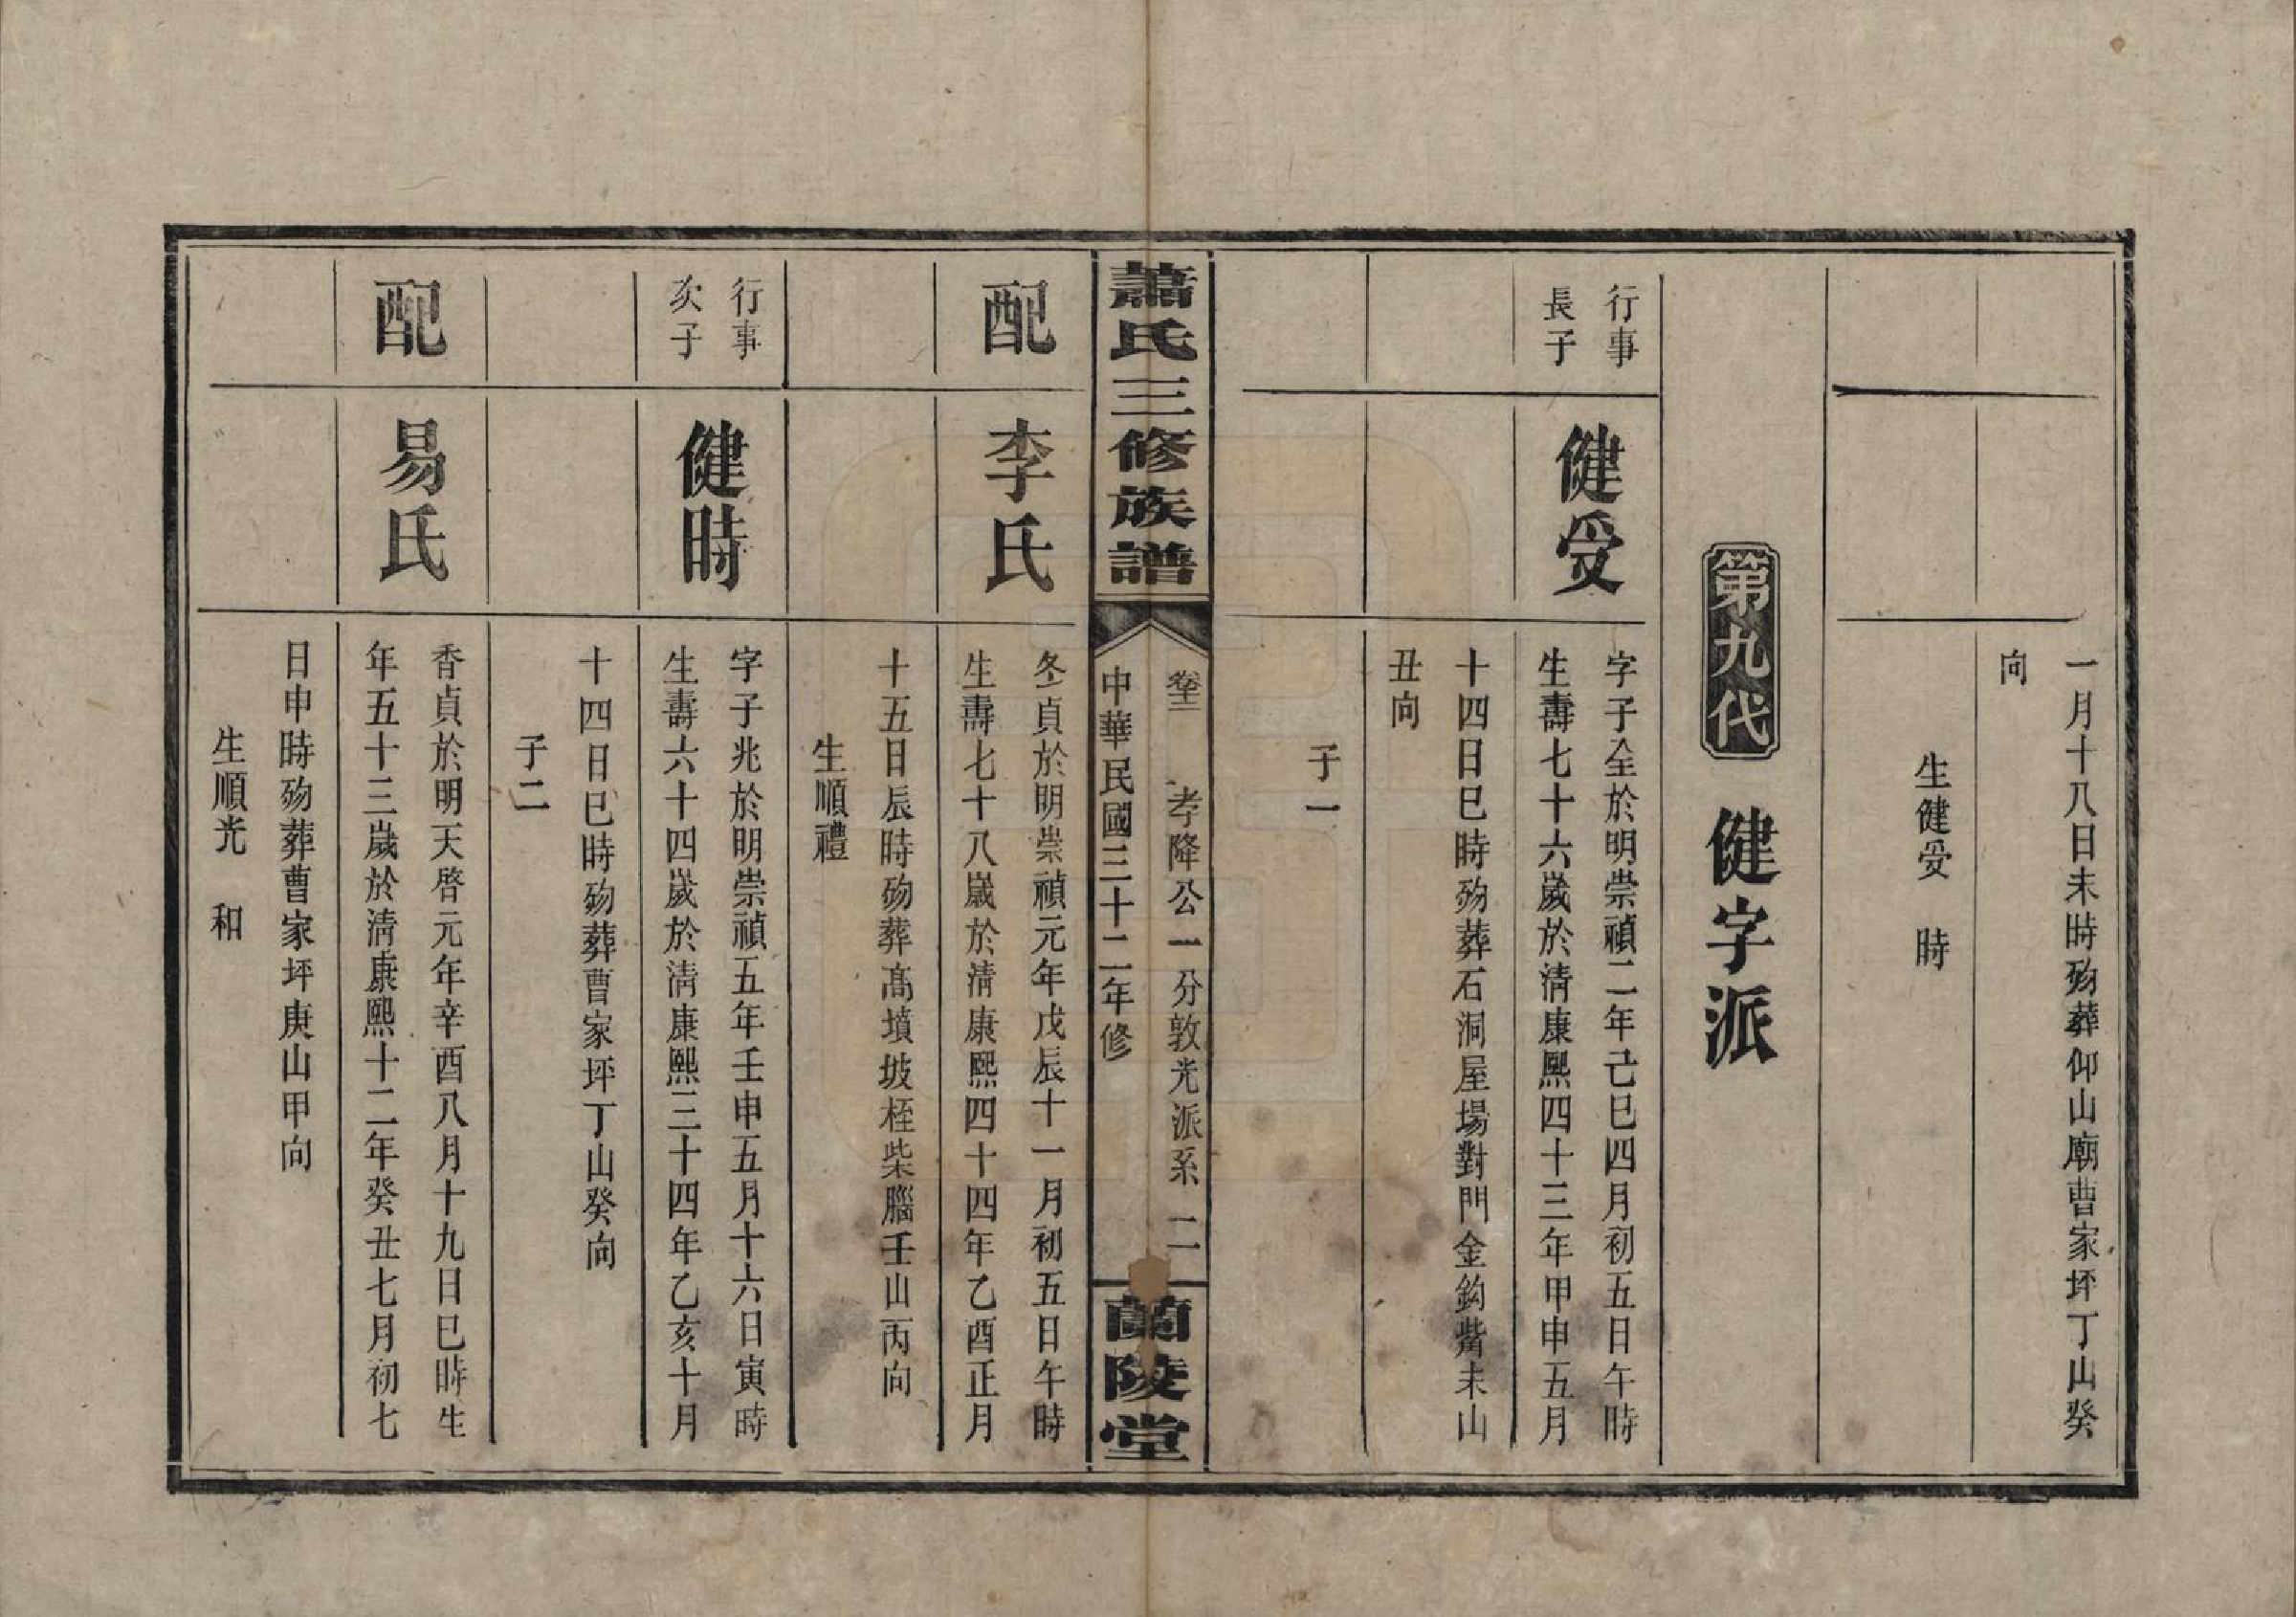 一月十八日未時歾葬仰山廟曹家坪丁山癸
向
生健受　時
第九代　健字派
行事
長子
健受
字子全於明崇禎二年己巳四月初五日午時
生壽七十六歲於清康熙四十三年甲申五月
十四日巳時歾葬石洞屋場對門金鈎觜未山
丑向
子一
蕭氏三修族譜
孝降公一分敦光派系　二
中華民國三十二年修
蘭陵堂
配
李氏
冬貞於明崇禎元年戊辰十一月初五日午時
生壽七十八歲於清康熙四十四年乙酉正月
十五日辰時歾葬高墳坡桎柴腦壬山丙向
生順禮
行事
次子
健時
字子兆於明崇禎五年壬申五月十六日寅時
生壽六十四歲於清康熙三十四年乙亥十月
十四日巳時歾葬曹家坪丁山癸向
子二
配
易氏
香貞於明天啓元年辛酉八月十九日巳時生
年五十三歲於清康熙十二年癸丑七月初七
日申時歾葬曹家坪庚山甲向
生順光　和